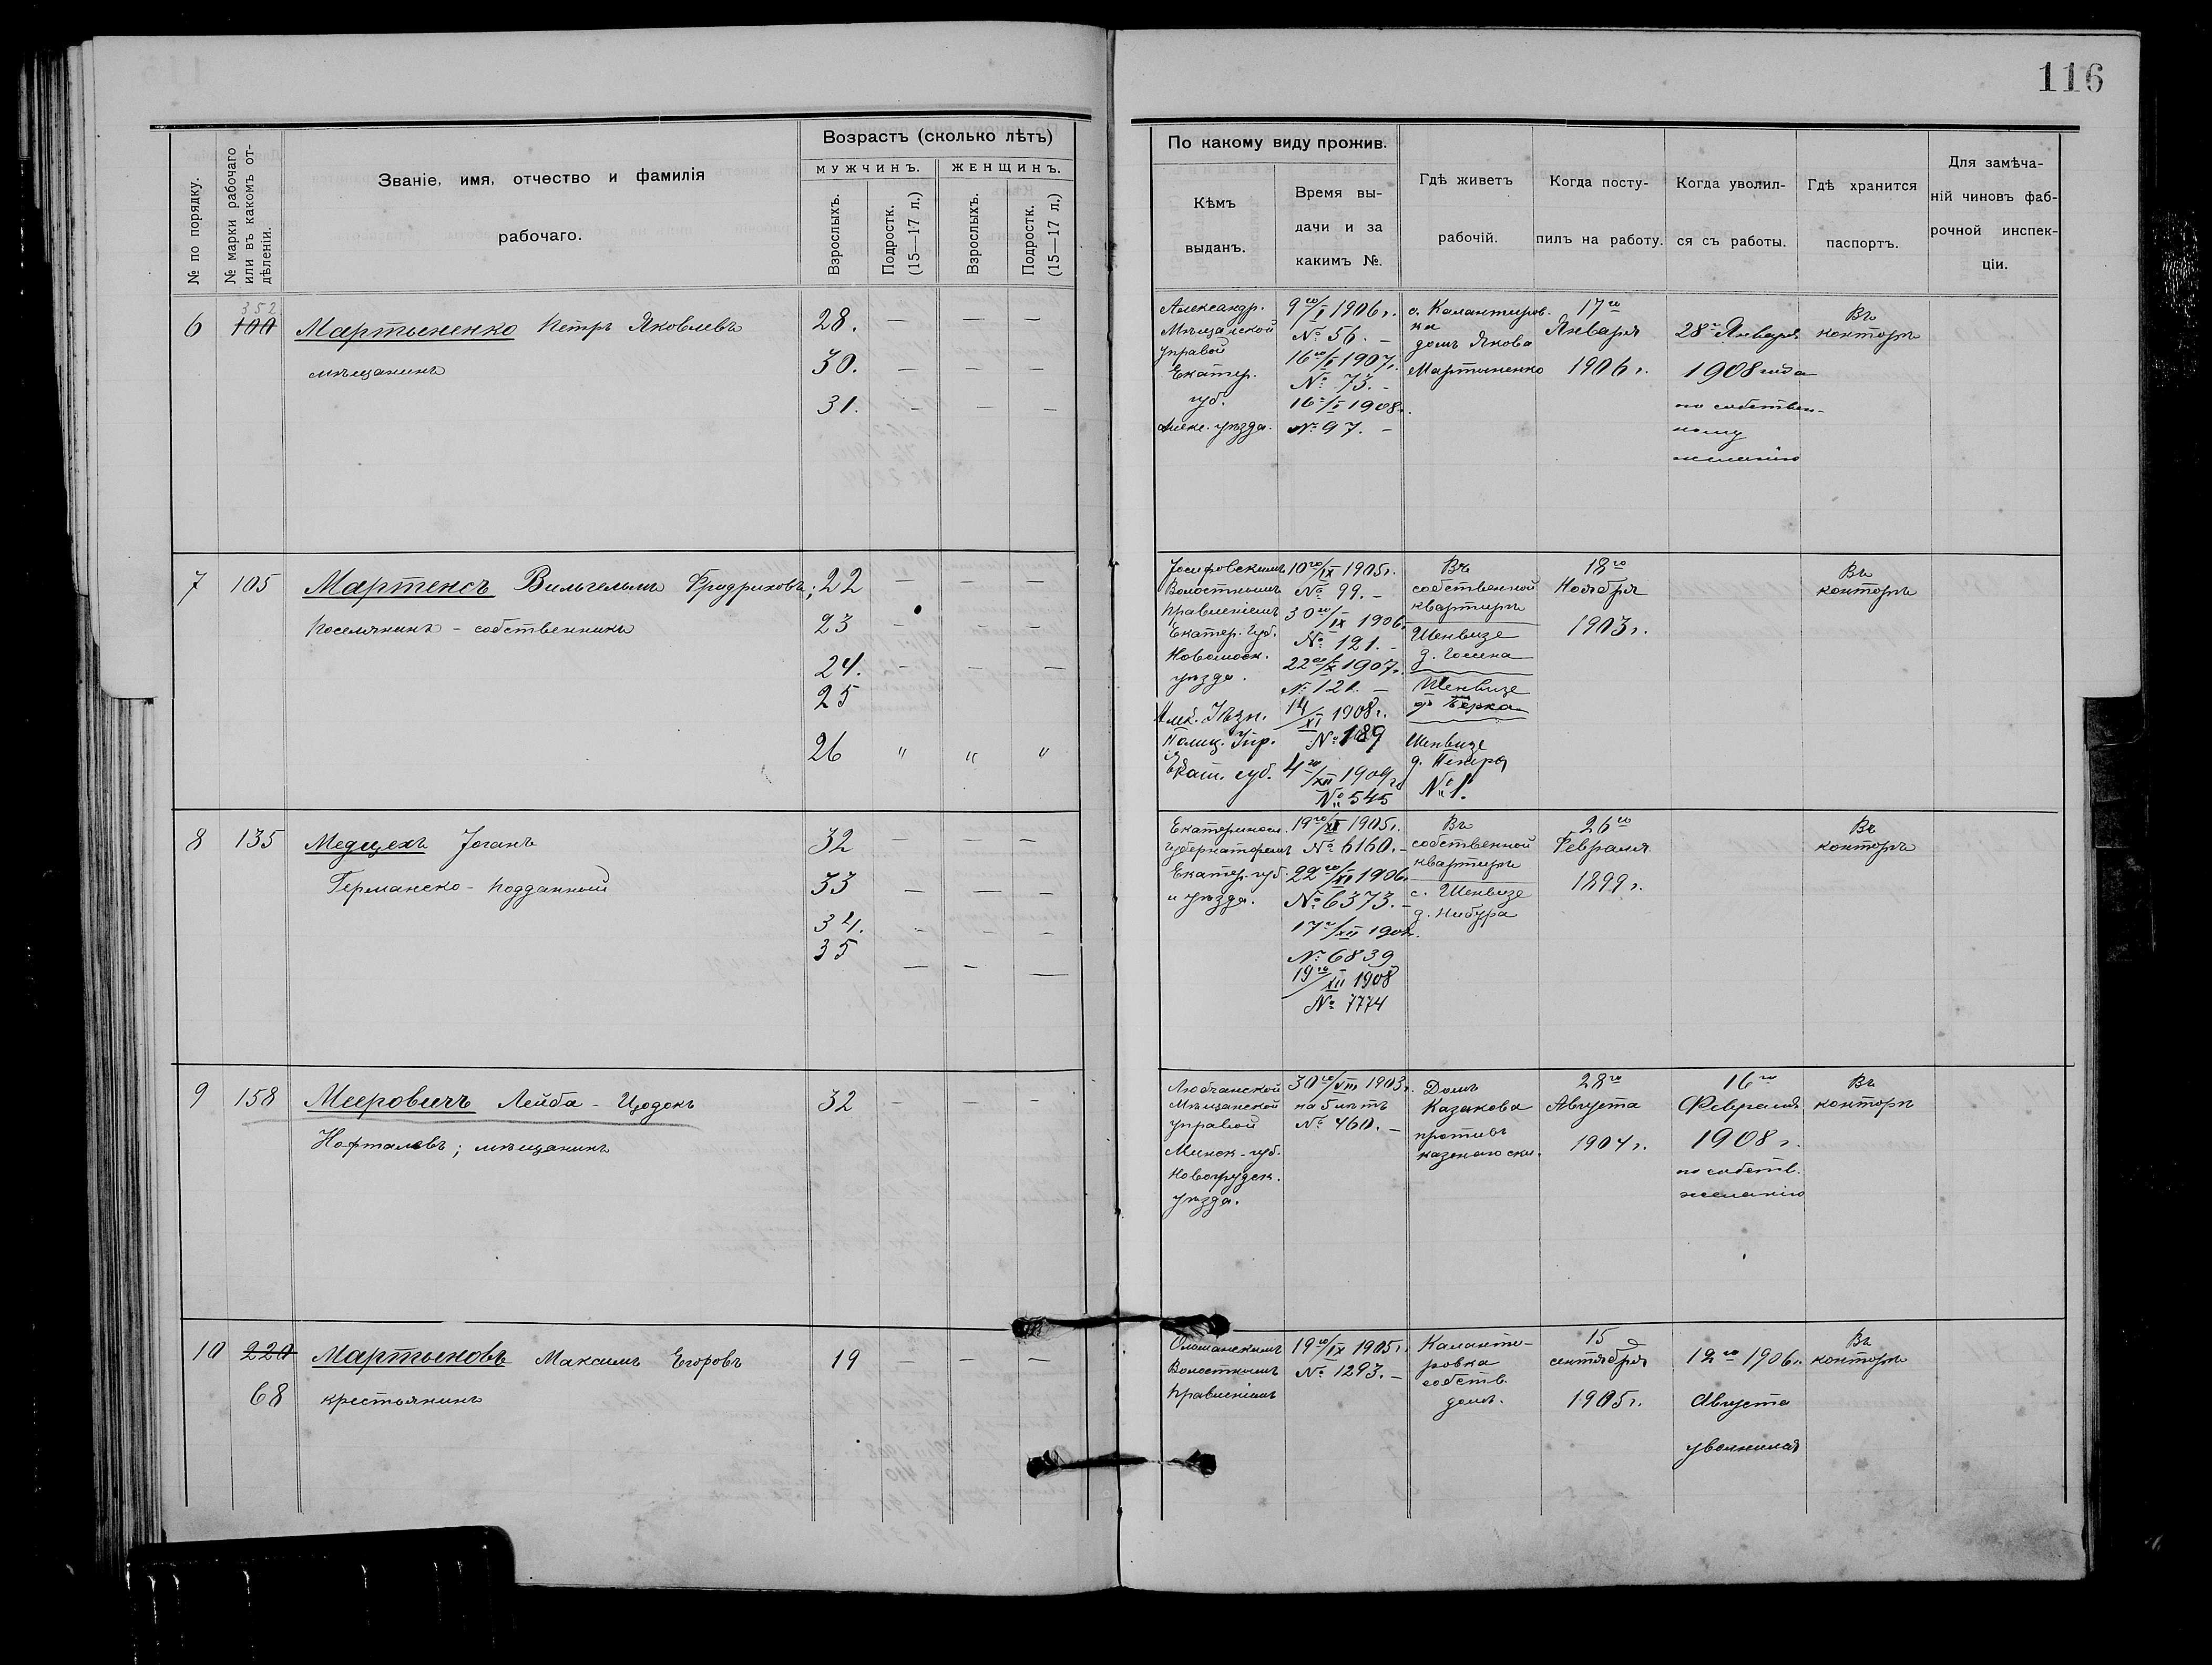 116
№ по порядку.
№ марки рабочаго или въ какомъ от-дѣленіи.
Званіе, имя, отчество и фамилія
рабочаго.
Возрастъ (сколько лѣтъ)
МУЖЧИНЪ.
ЖЕНЩИНЪ.
Взрослыхъ.
Подростк. (15—17 л.)
Взрослыхъ.
Подростк. (15—17 л.)
По какому виду прожив.
Кѣмъ
выданъ.
Время вы-
дачи и за
какимъ №.
Гдѣ живетъ
рабочій.
Когда посту-
пилъ на работу.
Когда уволил-
ся съ работы.
Гдѣ хранится
паспортъ.
Для замѣча-
ній чиновъ фаб-
рочной инспек-
ціи.
6
352
100
Мартыненко Петръ Яковлевъ
мѣщанинъ
28. — — —
30. — — —
31. — — —
Александр.
Мѣщанской
управой
Екатер.
губ.
Алекс. уѣзда.
9го/I 1906 г.
№ 56. —
16го/I 1907 г.
№ 73. —
16го/I 1908 г.
№ 97. —
с. Калантыров-
ки
домъ Якова
Мартыненко
17го
Января
1906 г.
28го Января
1908 года
по собствен-
ному
желанію
Въ
конторѣ
7
105
Мартенсъ Вильгельмъ Фридриховъ;
поселянинъ - собственникъ
22 — — —
23 — — —
24. — — —
25
26 〃 〃 〃
Іосифовскимъ
Волостнымъ
правленіемъ
Екатер. губ.
Новомоск.
уѣзда.
Алек. Уѣзн.
Полиц. Упр.
Екат. губ.
10го/IX 1905 г.
№ 99. —
30го/IX 1906 г.
№ 121. —
22го/X 1907 г.
№ 121. —
14/XI 1908 г.
№ 189
4го/XII 1909 г.
№ 545
Въ
собственной
квартирѣ
Шенвизе
Шенвизе
Шенвизе
№ 1.
18го
Ноября
1903 г.
Въ
конторѣ
8
135
Медцехъ Іоганъ
Германско - подданный
32 — — —
33 — — —
34. — — —
35 — — —
Екатериносл.
губернаторомъ
Екатер. губ.
и уѣзда.
19го/XII 1905 г.
№ 6160. —
22го/XII 1906 г.
№ 6373. —
17го/XII 1907 г.
№ 6839
19го/XII 1908
№ 7774
Въ
собственной
квартирѣ
с. Шенвизе
д. Нибура
26го
Февраля
1899 г.
Въ
конторѣ
9
158
Мееровичъ Лейба - Цодокъ
Нофталевъ; мѣщанинъ
32 — — —
Любчанской
Мѣщанской
управой
Минск. губ.
Новогрудск.
уѣзда.
30го/VIII 1903 г.
на 5 лѣтъ
№ 460. —
Домъ
Казакова
противъ
казеннаго скл.
28го
Августа
1904 г.
16го
Февраля
1908 г.
по собств.
желанію
Въ
конторѣ
10
220
68
Мартыновъ Максимъ Егоровъ
крестьянинъ
19 — — —
Волостнымъ
правленіемъ
19го/IX 1905 г.
№ 1293. —
Каланты-
ровка
собств.
домъ.
15
сентября
1905 г.
12го 1906 г.
Августа
уволился
Въ
конторѣ